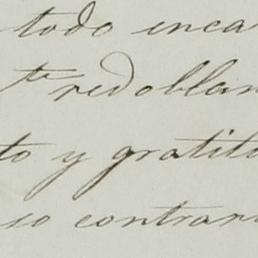 todo inca
te redoblan
to y gratitu
so contrari